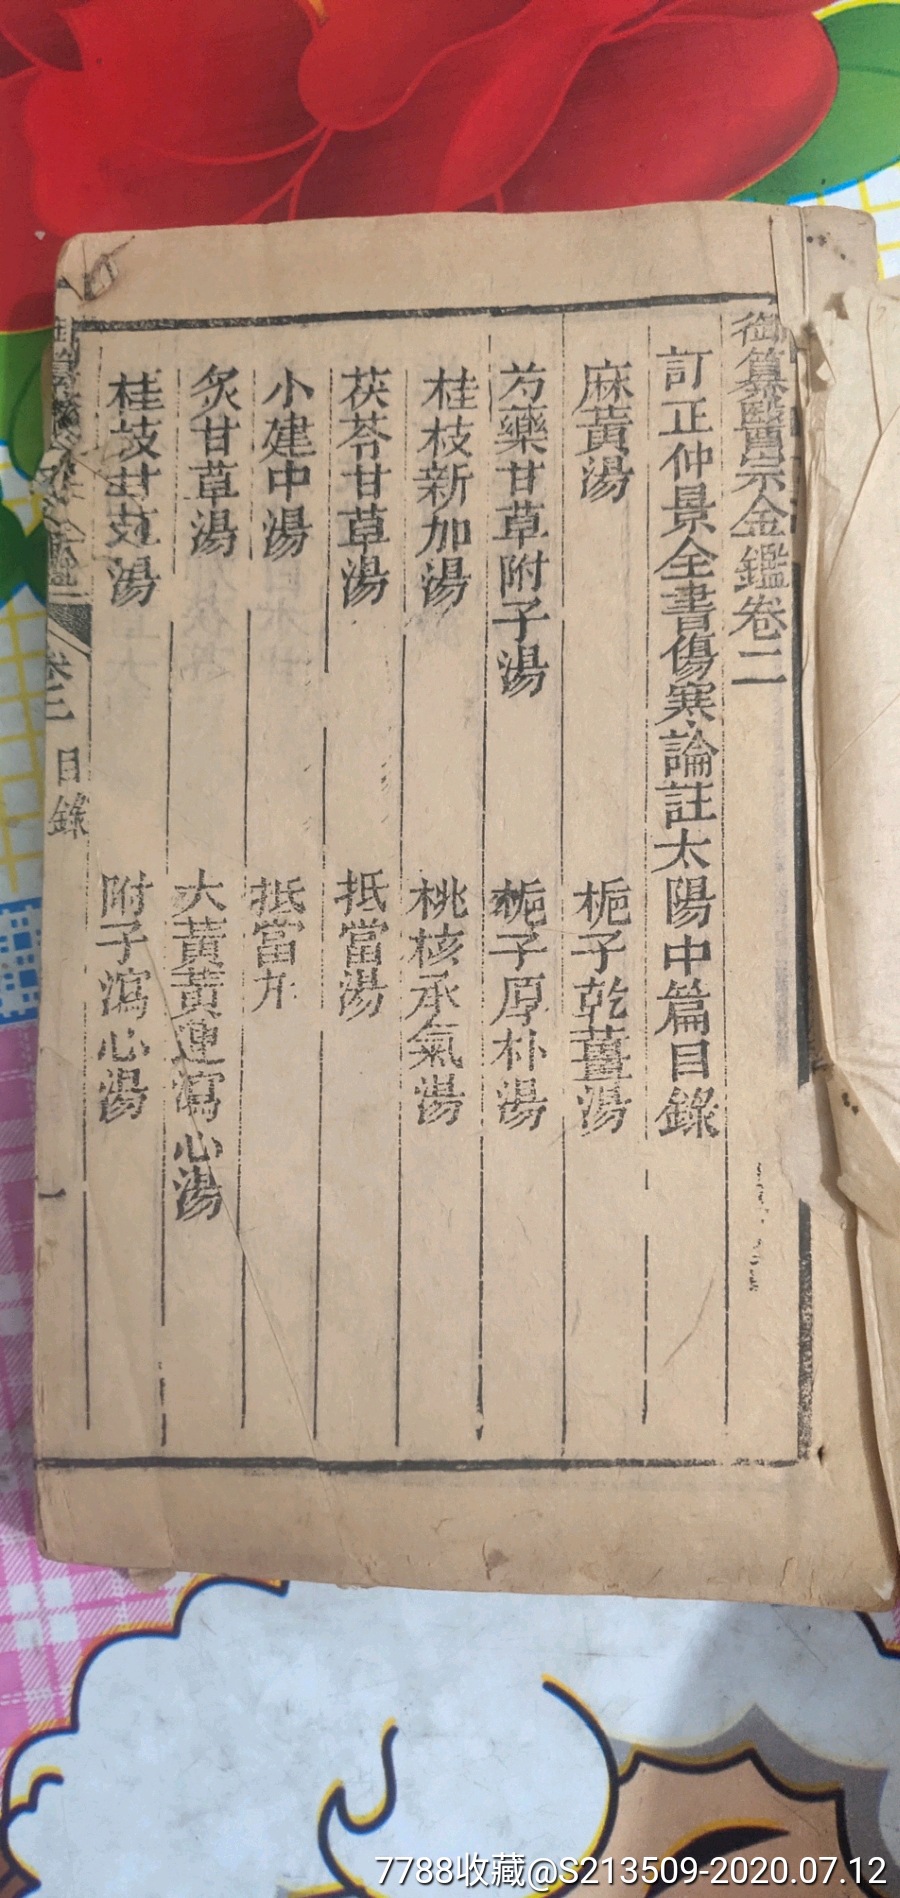 御纂醫宗金鑑卷二
訂正仲景全書傷寒論註太陽中篇目錄
麻黃湯
梔子乾薑湯
芍藥甘草附子湯
梔子厚朴湯
桂枝新加湯
桃核承氣湯
茯苓甘草湯
抵當湯
小建中湯
抵當丸
炙甘草湯
大黃黃連瀉心湯
桂枝甘草湯
附子瀉心湯
卷二
目錄
一
7788收藏@S213509-2020.07.12